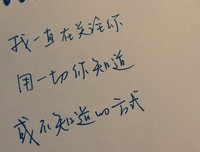 我一直在关注你
用一切你知道
或不知道的方式